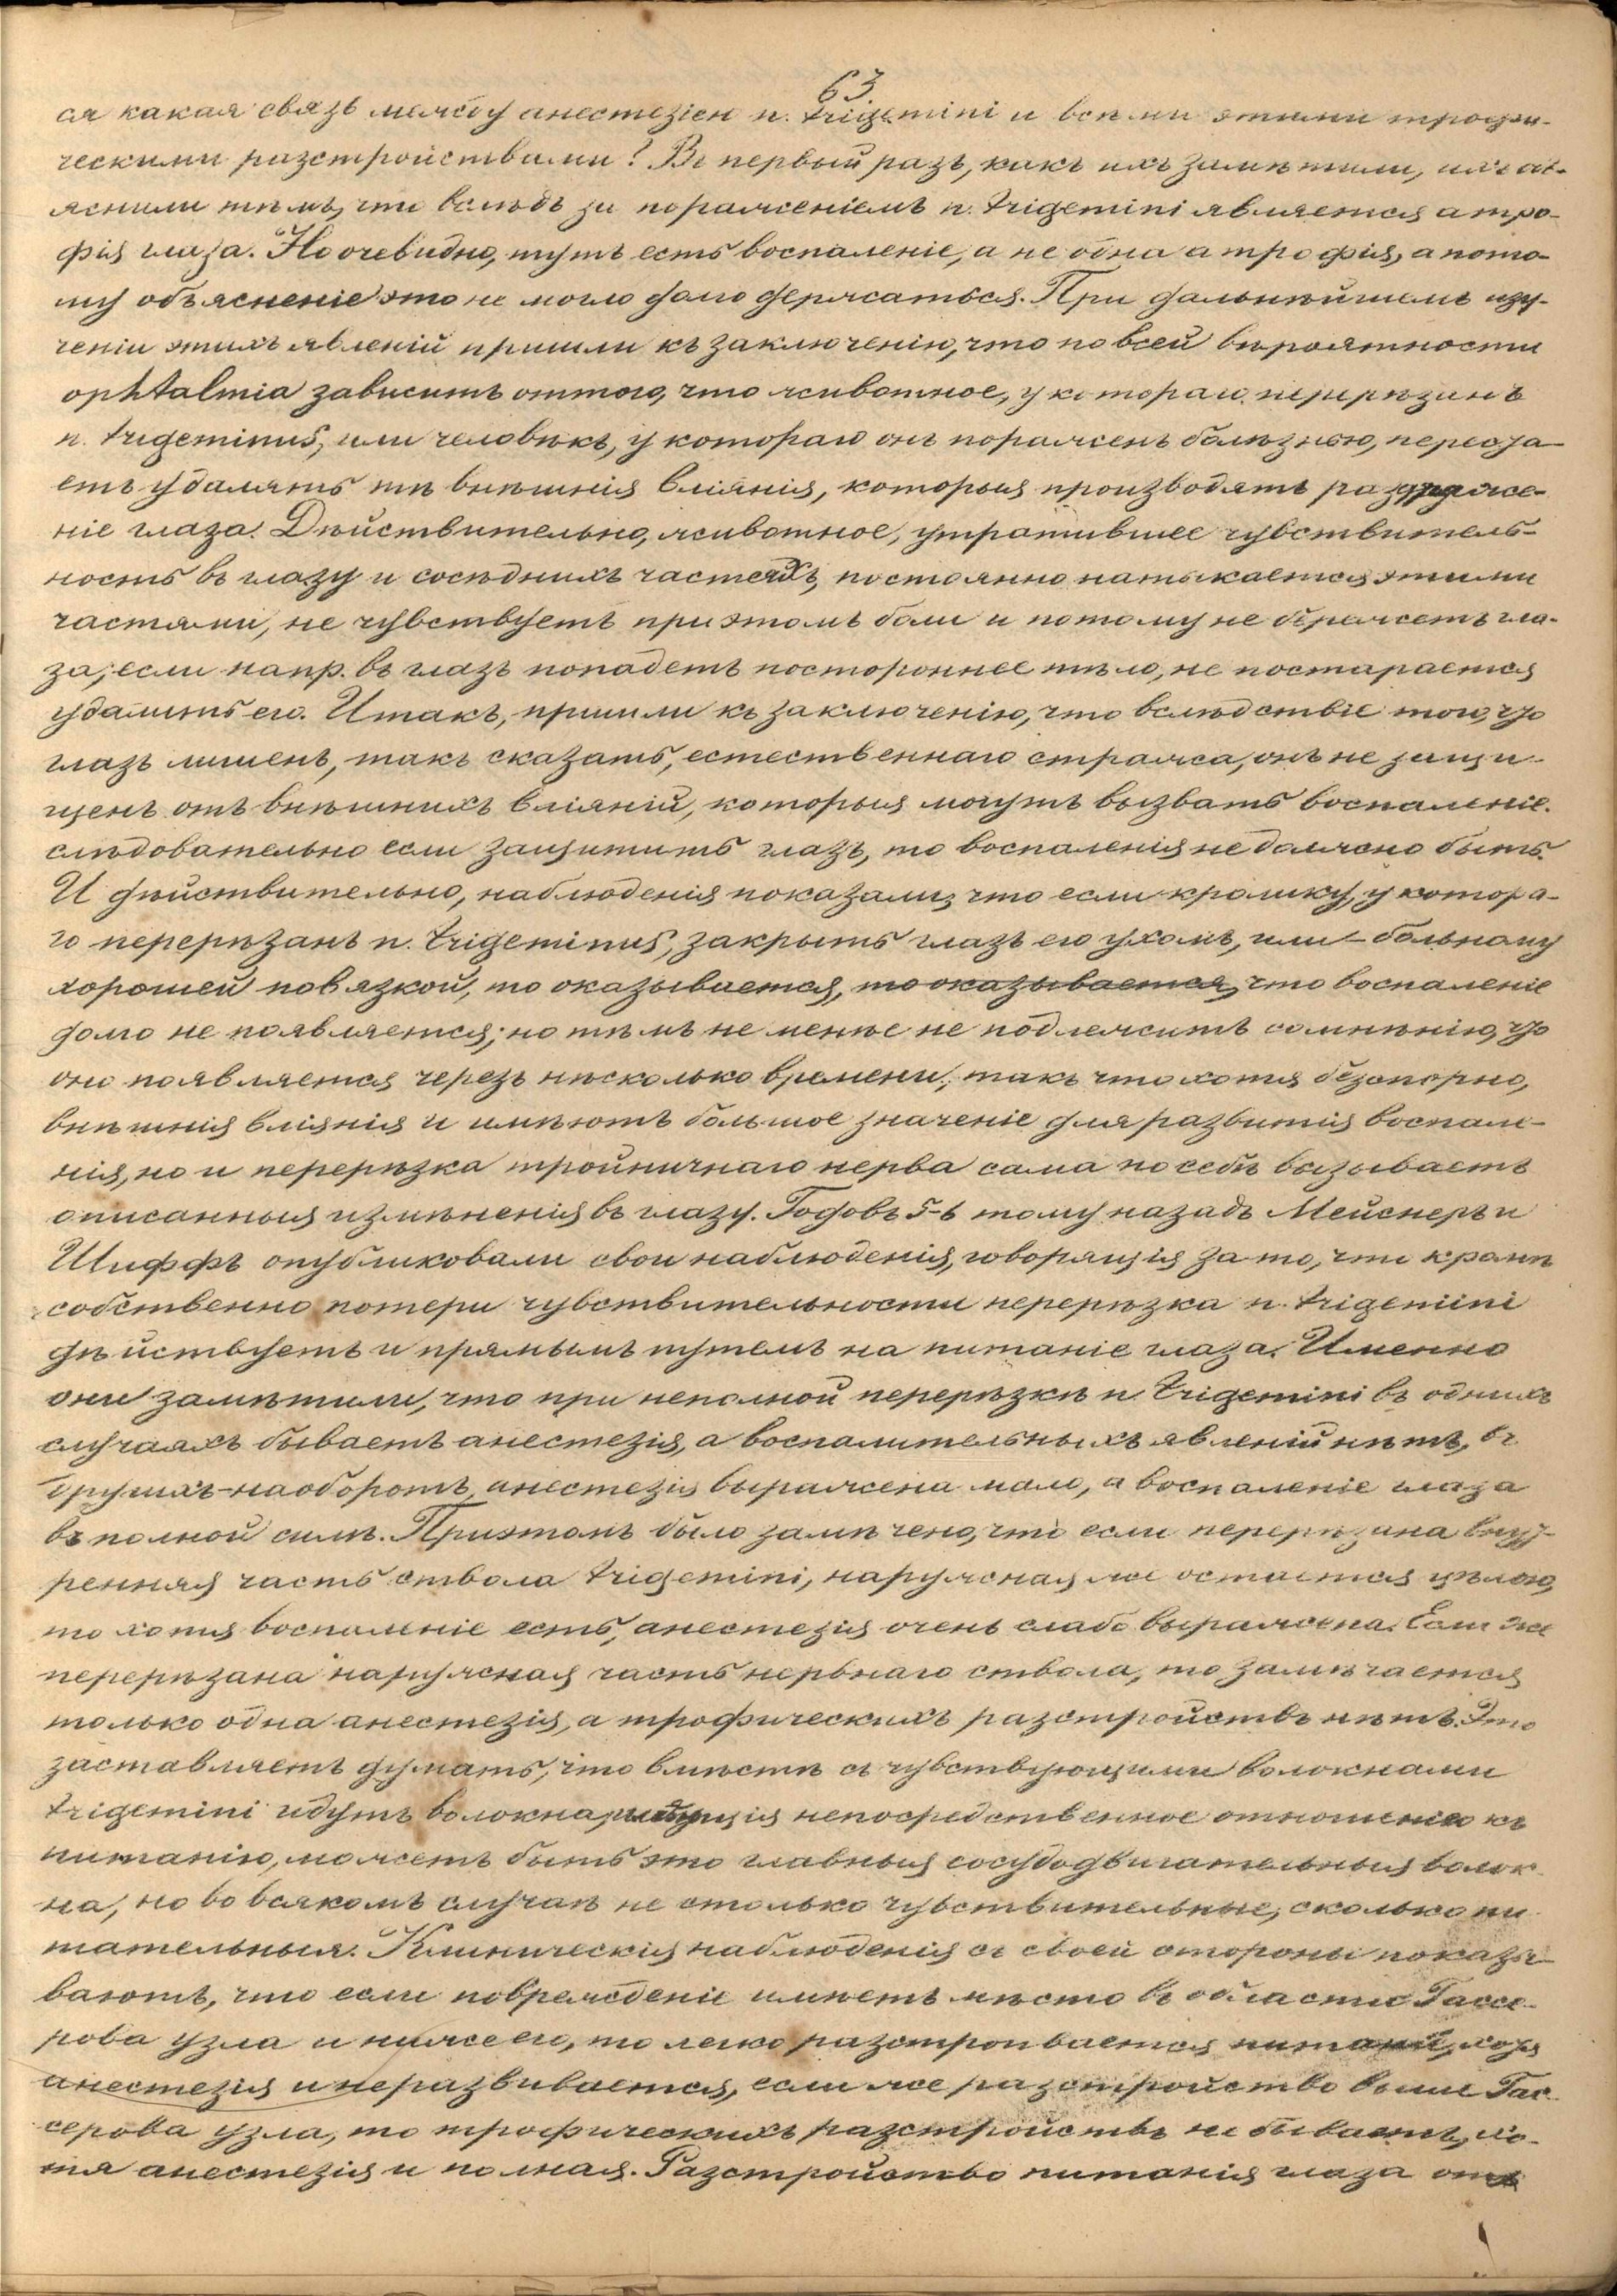 63.
ся какая связь между анестезіею n. trigemini и всѣми этими трофи-
ческими разстройствами? Въ первый разъ, какъ ихъ замѣтили, ихъ объ-
яснили тѣмъ, что вслѣдъ за пораженіемъ n. trigemini является атро-
фія глаза. Но очевидно, тутъ есть воспаленіе, а не одна атрофія, а пото-
му объясненіе это не могло долго держаться. При дальнѣйшемъ изу-
ченіи этихъ явленій пришли къ заключенію, что по всей вѣроятности
ophtalmia зависитъ оттого, что животное, у котораго перерѣзанъ
n. trigeminus, или человѣкъ, у котораго онъ пораженъ болѣзнью, переста
етъ удалять тѣ внѣшнія вліянія, которыя производятъ раздраже-
ніе глаза. Дѣйствительно, животное, утратившее чувствитель-
ность въ глазу и сосѣднихъ частяхъ, постоянно натыкается этими
частями, не чувствуетъ при этомъ боли и потому не бережетъ гла-
за; если напр. въ глазъ попадетъ постороннее тѣло, не постарается
удалить его. Итакъ, пришли къ заключенію, что вслѣдствіе того, что
глазъ лишенъ, такъ сказать, естественнаго стража, онъ не защи-
щенъ отъ внѣшнихъ вліяній, которыя могутъ вызвать воспаленіе.
слѣдовательно если защитить глазъ, то воспаленія не должно быть.
И дѣйствительно, наблюденія показали, что если кролику, у котора-
го перерѣзанъ n. trigeminus, закрыть глазъ его ухомъ, или – больному
хорошей повязкой, то оказывается, то оказывается, что воспаленіе
долго не появляется; но тѣмъ не менѣе не подлежитъ сомнѣнію, что
оно появляется черезъ нѣсколько времени; такъ что хотя безспорно,
внѣшнія вліянія и имѣютъ большое значеніе для развитія воспале-
нія, но и перерѣзка тройничнаго нерва сама по себѣ вызываетъ
описанныя измѣненія въ глазу. Годовъ 5-ь тому назадъ Мейснеръ и
Шиффъ опубликовали свои наблюденія, говорящія за то, что кромѣ
собственно потери чувствительности перерѣзка n. trigemini
дѣйствуетъ и прямымъ путемъ на питаніе глаза. Именно
они замѣтили, что при неполной перерѣзкѣ n. trigemini въ однихъ
случаяхъ бываетъ анестезія, а воспалительныхъ явленій нѣтъ, въ
другихъ – наоборотъ, анестезія выражена мало, а воспаленіе глаза
въ полной силѣ. При этомъ было замѣчено, что если перерѣзана внут-
ренняя часть ствола trigemini, наружная же остается цѣлою,
то хотя воспаленіе есть, анестезія очень слабо выражена. Если же
перерѣзана наружная часть нервнаго ствола, то замѣчается
только одна анестезія, а трофическихъ разстройствъ нѣтъ. Это
заставляетъ думать, что вмѣстѣ съ чувствующими волокнами
trigemini идутъ волокна, имѣющія непосредственное отношеніе къ
питанію, можетъ быть это главныя сосудодвигательныя волок-
на, но во всякомъ случаѣ не столько чувствительные, сколько пи
тательныя. Клиническія наблюденія съ своей стороны показы-
ваютъ, что если поврежденіе имѣетъ мѣсто въ области Гассе-
рова узла и ниже его, то легко разстроивается питаніе, хотя
анестезія и не развивается, если же разстройство выше Гас-
серова узла, то трофическихъ разстройствъ не бываетъ, хо-
тя анестезія и полная. Разстройство питанія глаза отъ